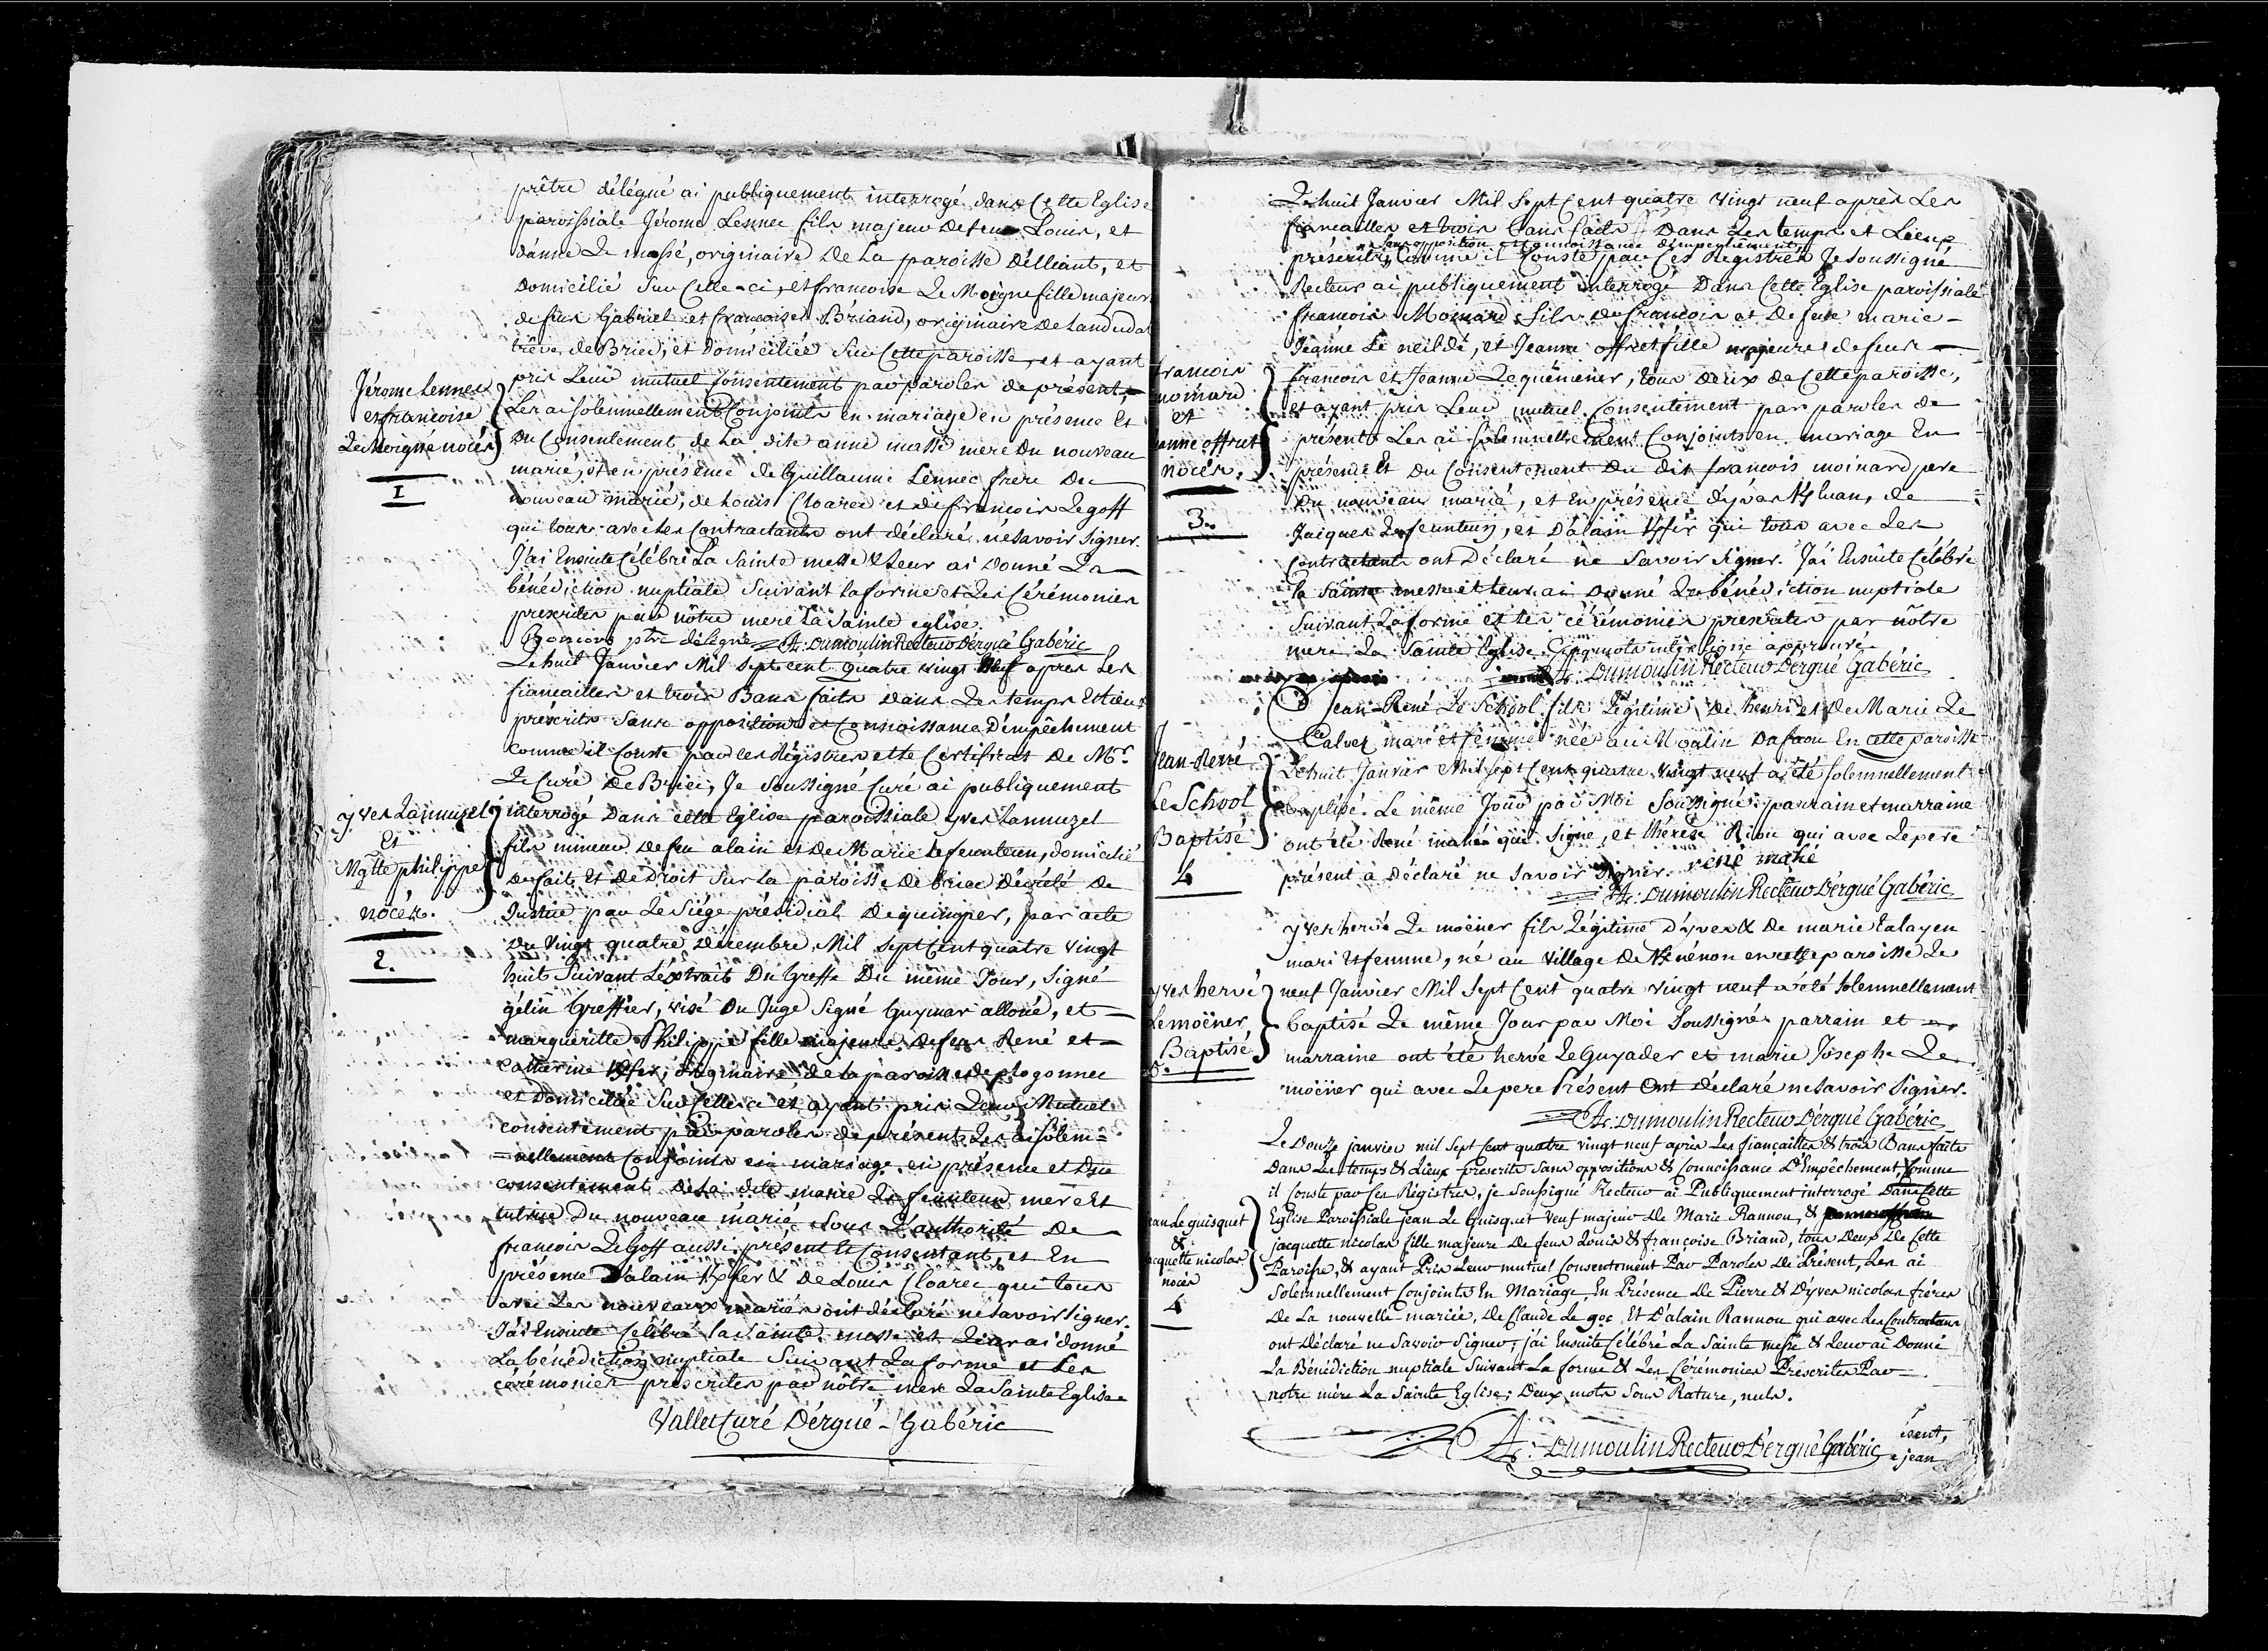 prêtre délégué ai publiquement interrogé dans Cette Eglise
paroissiale Jérome Lennec fils majeur de feu Louis, et
d'anne Le massé, originaire de La paroisse d'Elliant, et
Domicilié Sur Celle-ci, et francoise Le Moigne fille majeure
de feus Gabriel et francoise Briand, originaire de Landudal
trêve de Briec, et Domiciliée Sur Cette paroisse, et ayant
pris Leur mutuel Consentement par paroles de présent,
Jérome Lennec
et francoise
Le Moigne nôces
1
Les ai Solemnellement Conjoints en mariage en présence Et
Du Consentement de La dite anne massé mere Du nouveau
marié, et en présence de Guillaume Lennec frere Du
nouveau marié, de Louis Cloarec et de francois Le goff
qui tous avec Les Contractants ont déclaré ne Savoir Signer.
J'ai Ensuite Célébré La Sainte messe & Leur ai Donné La
bénédiction nuptiale Suivant la forme et Les Cérémonies
prescrites par nôtre mere La Sainte eglise.
ptre délégué A: Dumoulin Recteur D'ergué Gabéric
Le huit Janvier Mil Sept cent quatre vingt Neuf apres Les
fiancailles et trois Bans faits dans Les temps Et Lieux
préscrits Sans opposition et Connoissance D'empêchement
comme il Conste par les Régistres et Le Certificat de Mr.
Le Curé De Briec, Je Soussigné Curé ai publiquement
yves Lannuzel
Et
Mgtte philippe
nôces.
2.
interrogé Dans cette Eglise paroissiale yves Lannuzel
fils mineur de feu alain et De Marie Le feunteun, domicilié
De fait Et De Droit Sur La paroisse De briec Décrété De
Justice par Le Siége présidial De quimper, par acte
Du vingt quatre Décembre Mil Sept Cent quatre vingt
huit Suivant L'éxtrait Du Greffe Du même Jour, Signé
gélin Greffier, visé Du Juge Signé Guymar alloué, et
margueritte Philippe fille majeure De feus René et
Catherine originaire de la paroisse de plogonnec
et Domiciliée Sur Celle ci et ayant pris Leur Mutuel
consentement par paroles de présent, Les ai Solem=
=nellement Conjoints en mariage en présence et Du
consentement De La dite marie Le feunteun mere Et
tutrice Du nouveau marié Sous L'authorité De
francois Le Goff aussi présent Et Consentant, et En
présence D'alain & De Louis Cloarec qui tous
avec Les nouveaux mariés ont déclaré ne Savoir Signer.
J'ai Ensuite Célébré la Sainte messe et Leur ai donné
La bénédiction nuptiale Suivant La forme et Les
cérémonies prescrites par nôtre mere La Sainte Eglise
Vallet Curé D'érgué-Gabéric
Le huit Janvier Mil Sept Cent quatre vingt neuf après Les
fiancailles et trois bans faits Dans Les temps et Lieux
Sans opposition et Connoissance d'empêchement
préscrits, Comme il Conste par Ces Registres Je Soussigné
Recteur ai publiquement interrogé Dans Cette Eglise paroissiale
francois Moinard fils de francois et De feue marie-
Jeanne Le neildé, et Jeanne offret fille majeure de feus
francois
moinard
et
jeanne offret
nôces.
3.
francois et Jeanne Le quémener, tous deux de Cette paroisse,
et ayant pris Leur mutuel Consentement par paroles de
présent Les ai Solemnellement Conjoints en mariage En
présence Et Du Consentement Du dit francois moinard pere
Du nouveau marié, et En présence d'yves de
Jacques Le feunteun, et D'alain qui tous avec Les
Contractants ont Déclaré ne Savoir Signer. J'ai Ensuite Célébré
La Sainte messe et Leur ai Donné La bénédiction nuptiale
Suivant La forme et Les cérémonies prescrites par nôtre
mere La Sainte Eglise. Cinq mots interligne approuvé
A: Dumoulin Recteur D'ergué Gabéric
Jean-René Le School fils Légitime De henri et De Marie Le
Calvez mari et femme né au Moulin Dafaou En cette paroisse
Jean-René
Le School
Baptisé
4
Le huit Janvier Mil Sept Cent quatre vingt neuf a été Solemnellement
baptisé Le même Jour par Moi Soussigné: parrain et marraine
ont été René mahé qui Signe, et thérèse Riou qui avec Le pere
présent a Déclaré ne Savoir Signer. rené mahé
A: Dumoulin Recteur D'érgué Gabéric
yves hervé Le moëner fils Légitime D'yves & De marie talayen
mari Et femme, né au village De en cette paroisse Le
yves hervé
Le moëner
Baptisé
5.
neuf Janvier Mil Sept Cent quatre vingt neuf a été Solemnellement
baptisé Le même Jour par Moi Soussigné parrain et
marraine ont été hervé Le Guyader et marie Josephe Le
moëner qui avec Le pere Présent Ont déclaré ne Savoir Signer.
A: Dumoulin Recteur D'érgué Gabéric
Le Douze janvier mil Sept Cent quatre vingt neuf après Les fiançailles & trois Bans faits
Dans Les temps & Lieux prescrits Sans oppositions & Connoissance D'Empêchement, Comme
il Conste par Ces Régistres, je Soussigné Recteur ai Publiquement interrogé Dans Cette
jean Le guisquet
&
jacquette nicolas
nôces
4
Eglise Paroissiale jean Le Guisquet veuf majeur De Marie Rannou, &
jacquette nicolas fille majeure De feus Louis & françoise Briand, tous Deux De Cette
Paroisse, & ayant Pris Leur mutuel Consentement Par Paroles De Présent, Les ai
Solemnellement Conjoints En Mariage, En Présence De Pierre & D'yves nicolas fréres
De La nouvelle mariée, De Claude Le goc Et D'alain Rannou qui avec Les Contractans
ont Déclaré ne Savoir Signer; j'ai Ensuite Célébré La Sainte messe & Leur ai Donné
La Bénédiction nuptiale Suivant La forme & Les Cérémonies Préscrites Par
notre mère La Sainte Eglise; Deux mots Sous Rature, nuls.
A: Dumoulin Recteur D'érgué Gabéric
ésent,
jean